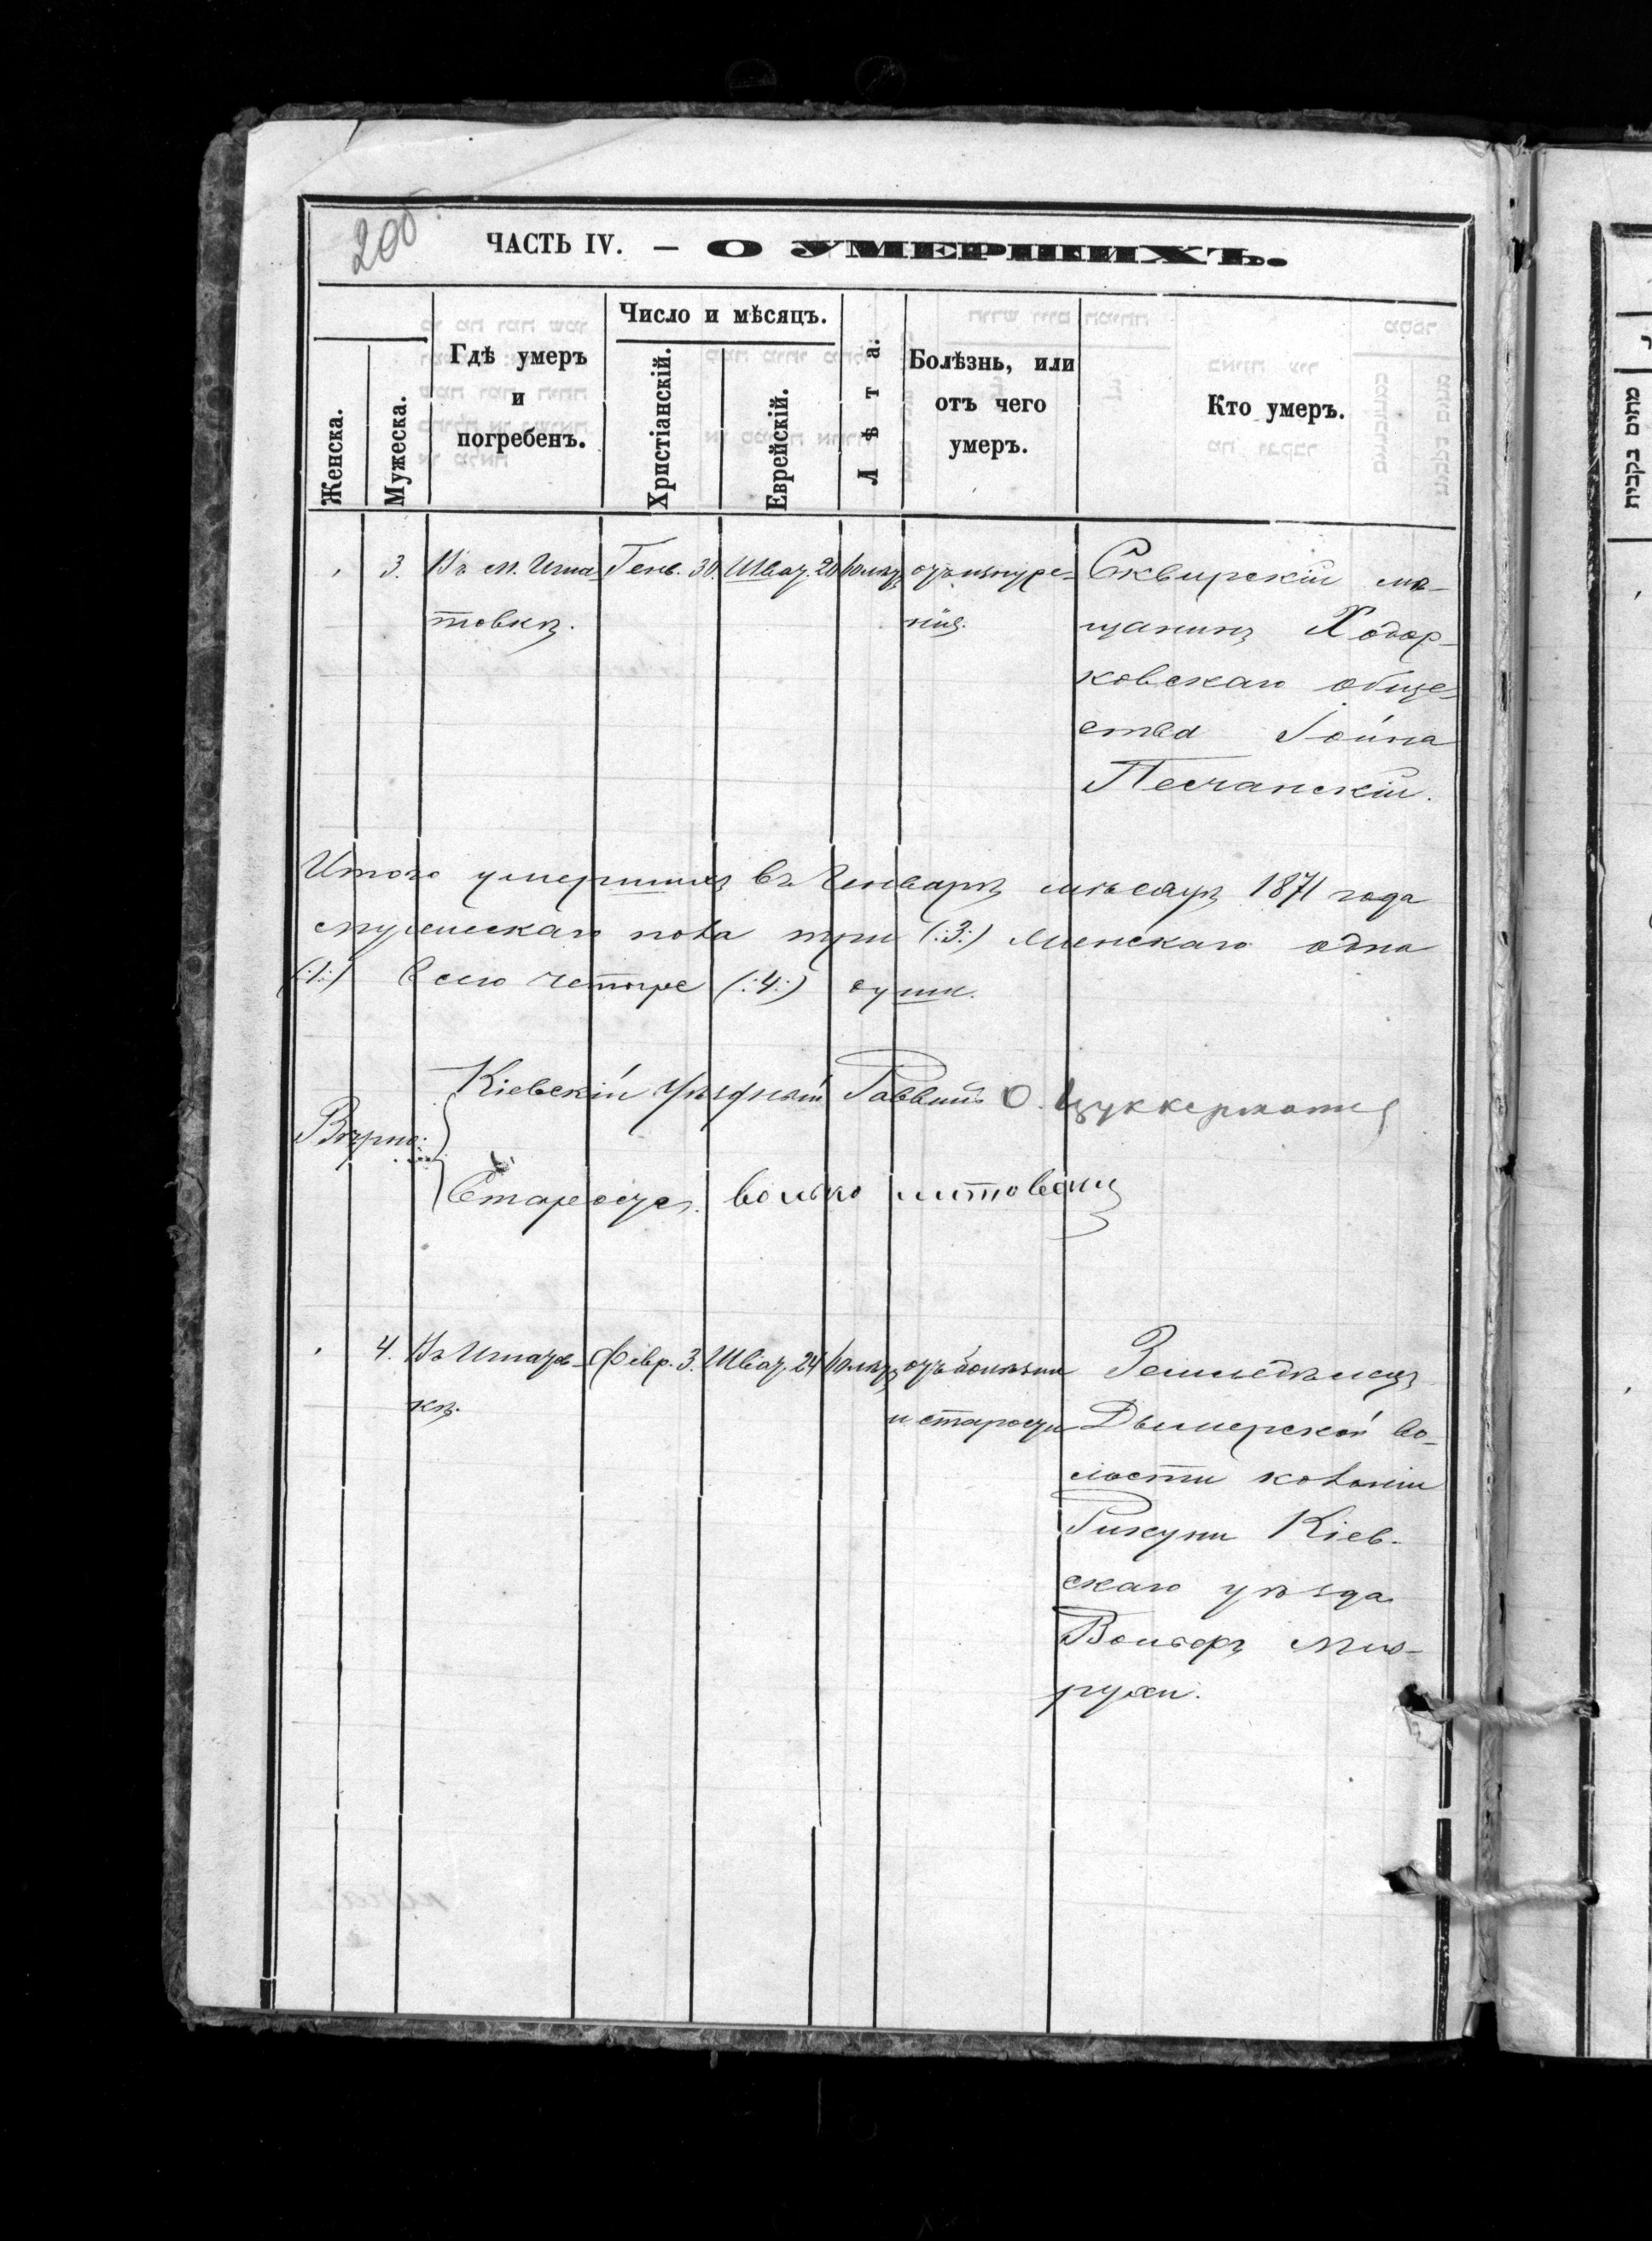 200
ЧАСТЬ IV. — О УМЕРШИХЪ.
Женска.
Мужеска.
Гдѣ умеръ
и
погребенъ.
Число и мѣсяцъ.
Христіанскій.
Еврейскій.
Лѣта.
Болѣзнь, или
отъ чего
умеръ.
Кто умеръ.
3. Въ м. Игна Генв. 30. Шват. 20 отъ изнуре- Сквирскій мѣ-
товкѣ. нія. щанинъ Ходор-
ковскаго обще-
ства Іойна
Песчанскій.
Итого умершихъ въ Генварѣ мѣсяцѣ 1871 года
мужескаго пола три (:3:) Женскаго одна
(:1:) Всего четыре (:4:) души.
Кіевскій Уѣздный Раввинъ О. Цуккерманъ
Вѣрно:
Староста. волько литовски
4. Въ Игнатов- Февр. 3. Шват. 24 отъ болѣзни Земледѣлецъ
кѣ. и старости Дымерской во-
лости колоніи
Рикуни Кіев-
скаго уѣзда
Вольфъ
מתים בקבית